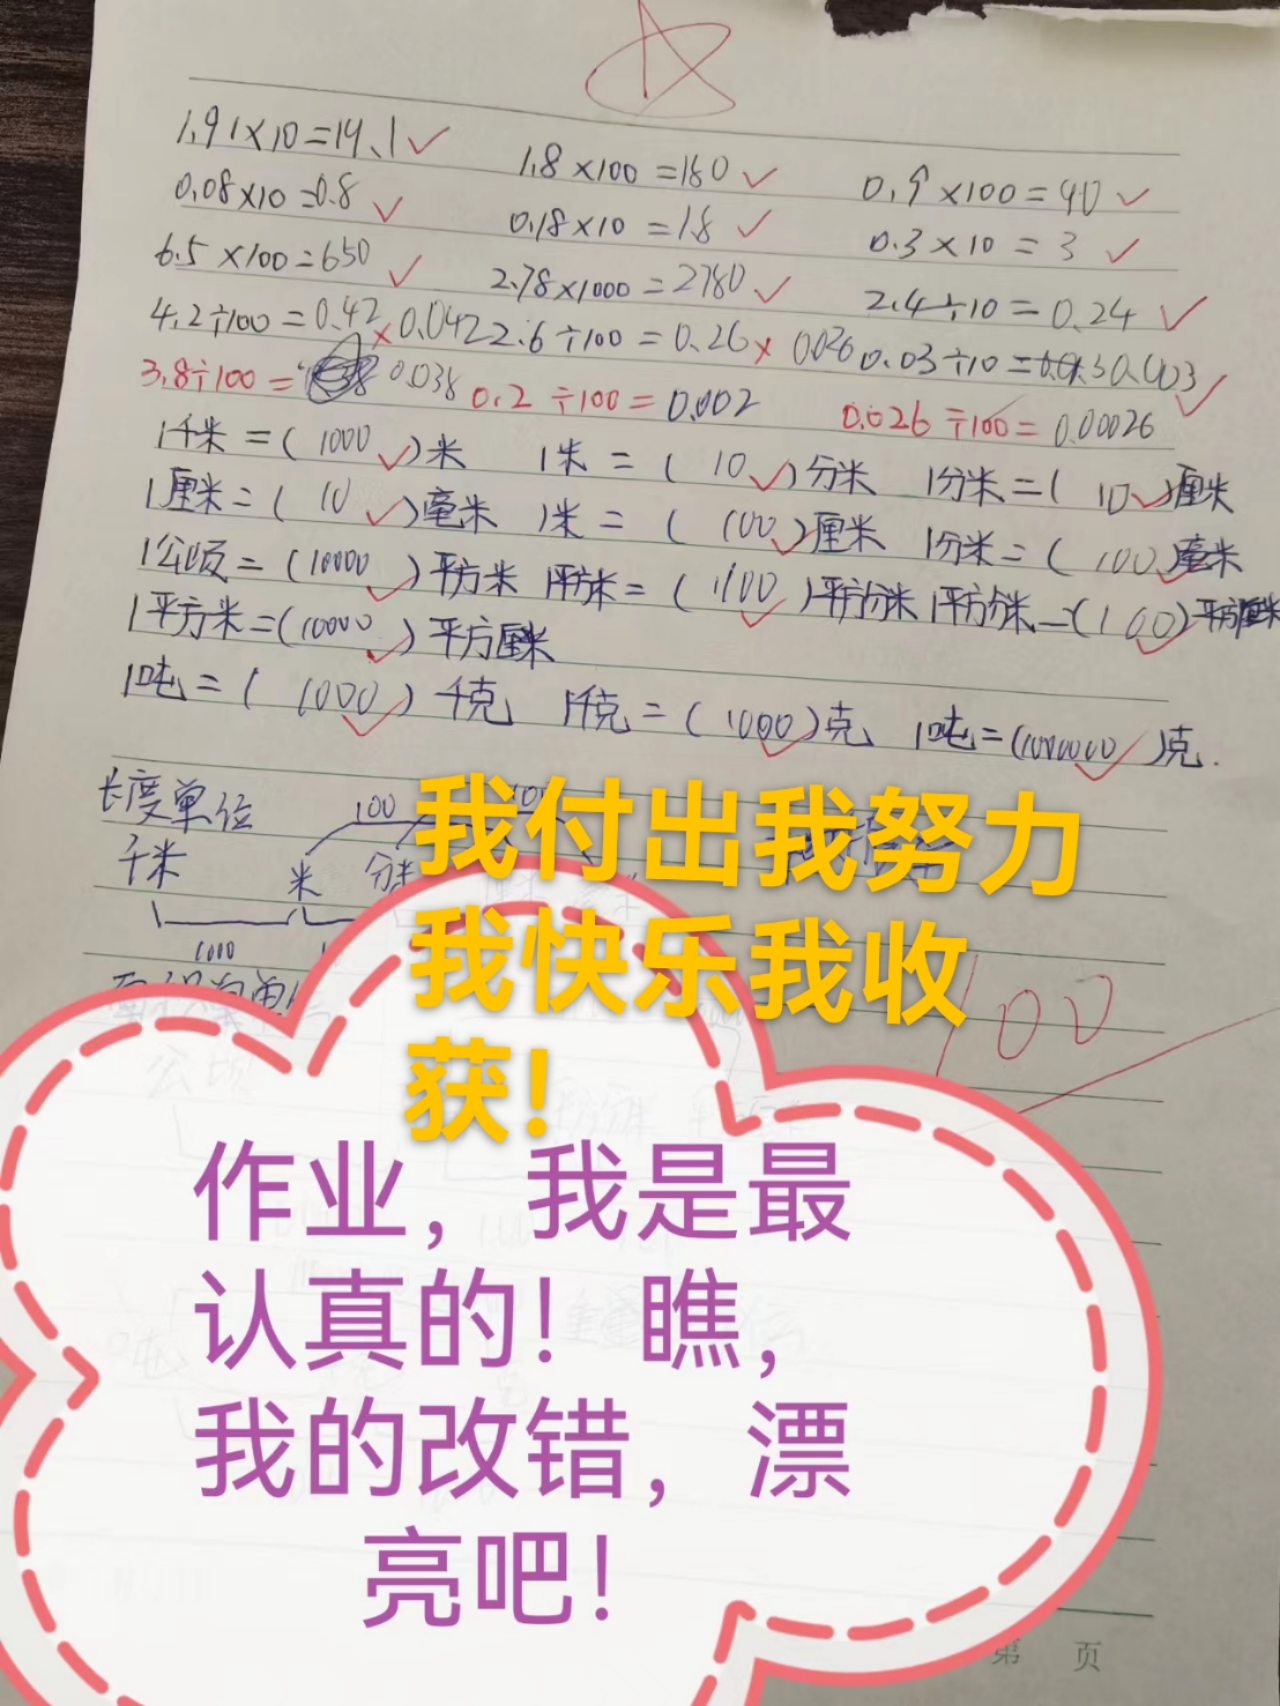 1.91×10=19.1 1.8×100=180 0.9×100=90
0.08×10=0.8 0.18×10=1.8 0.3×10=3
6.5×100=650 2.78×1000=2780 2.4÷10=0.24
4.2÷100=0.42 0.042 2.6÷100=0.26 0.026 0.03÷10= 0.003
3.8÷100= 0.038 0.2÷100=0.002 0.026÷100=0.00026
1千米=(1000)米 1米=(10)分米 1分米=(10)厘米
1厘米=(10)毫米 1米=(100)厘米 1分米=(100)毫米
1公顷=(10000)平方米 1平方米=(100)平方分米 1平方分米=(100)平方厘米
1平方米=(10000)平方厘米
1吨=(1000)千克 1千克=(1000)克 1吨=(1000000)克.
长度单位 100
千米 米 分米
1000
100
我付出我努力
我快乐我收
获！
作业，我是最
认真的！瞧，
我的改错，漂
亮吧！
第 页